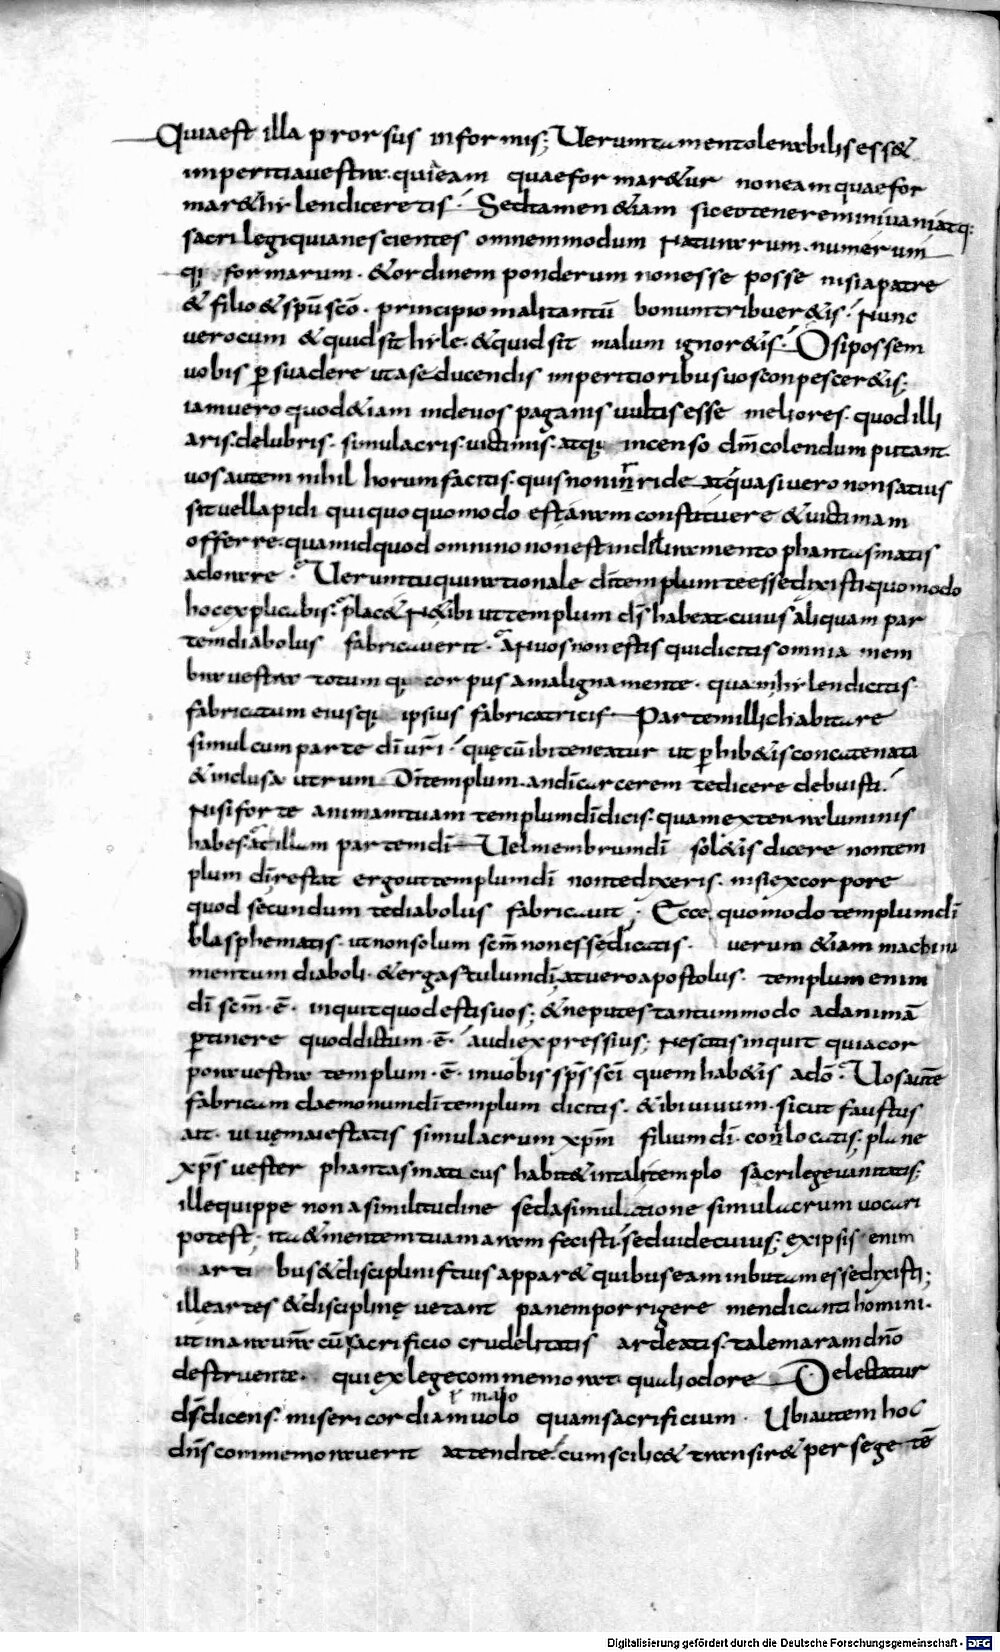 Quia est illa prorsus informis; Ueruntamen tolerabilis esset
imperitia uestra. qui eam quae formaretur non eam quae for
maret hylen diceretis. Sed tamen etiam sic eo teneremini uani atq:
sacrilegi qui a nescientes omnem modum naturarum. numerum
q; formarum. & ordinem ponderum non esse posse nisi a patre
& filio & spū scō. principio mali tantū bonum tribueretis. Nunc
uero cum & quid sit hyle. & quid sit malum ignoretis. O si possem
uobis p suadere ut a seducendis imperitioribus uos conpesceretis;
iam uero quod etiam inde uos paganis uultis esse meliores. quod illi
aris. delubris. simulacris. uictimis. atq; incenso dm̄ colendum putant.
uos autem nihil horum facitis. quis non inrideat quasi uero non satius
sit uel lapidi qui quoquo modo est aram constituere & uictimam
offerre. quam id quod omnino non est in deliramento phantasmatis
adorare. Uerum tu qui rationale dī templum te esse dixisti quomodo
hoc explicabis. placet n̄ tibi ut templum dī habeat. cuius aliquam par
tem diabolus fabricauerit. An uos non estis qui dicitis omnia mem
bra uestra totum q; corpus a maligna mente. quam hylen dicitis.
fabricatum eiusq; ipsius fabricatricis Partem illic habitare
simul cum parte dī uri. quę cū ibi teneatur ut p hibetis concatenata
& inclusa utrum dī templum. an dī carcerem te dicere debuisti.
Nisi forte animam tuam templum dī dicis. quam ex terra luminis
habes. at illam partem dī Uel membrum dī soletis dicere non tem
plum dī. restat ergo ut templum dī non te dixeris. nisi ex corpore
quod secundum te diabolus fabricauit. Ecce quomodo templum dī
blasphematis. ut non solum scm̄ non esse dicatis. uerum etiam machina
mentum diaboli. & ergastulum dī. at uero apostolus. templum enim
dī scm̄. ē. inquit quod estis uos; & ne putes tantummodo ad animā
ptinere quod dictum. ē. audi expressius; Nescitis inquit quia cor
pora uestra templum. ē. in uobis sps̄ scī quem habetis a dō. Uos autē
fabricam daemonum dī templum dicitis. & ibi uiuum. sicut faustus
ait. uiuę maiestatis simulacrum xpm̄ filium dī. conlocatis. plane
xps̄ uester phantasmaticus habitet in tali templo sacrilege uanitatis;
ille quippe non a similitudine sed a simulatione simulacrum uocari
potest. ita & mentem tuam aram fecisti. sed uide cuius; ex ipsis enim
artibus & disciplinis tuis apparet quibus eam inbutam esse dixisti;
ille artes & disciplinę uetant panem porrigere mendicanti homini.
ut in ara ura cū sacrificio crudelitatis ardeatis. talem aram dn̄o
destruente. qui ex lege commemorat. quali odore Delectatur
ds̄ dicens. misericordiam uolo quam sacrificium. Ubi autem hoc
dn̄s commemorauerit attendite. cum scilicet transiret per segetē